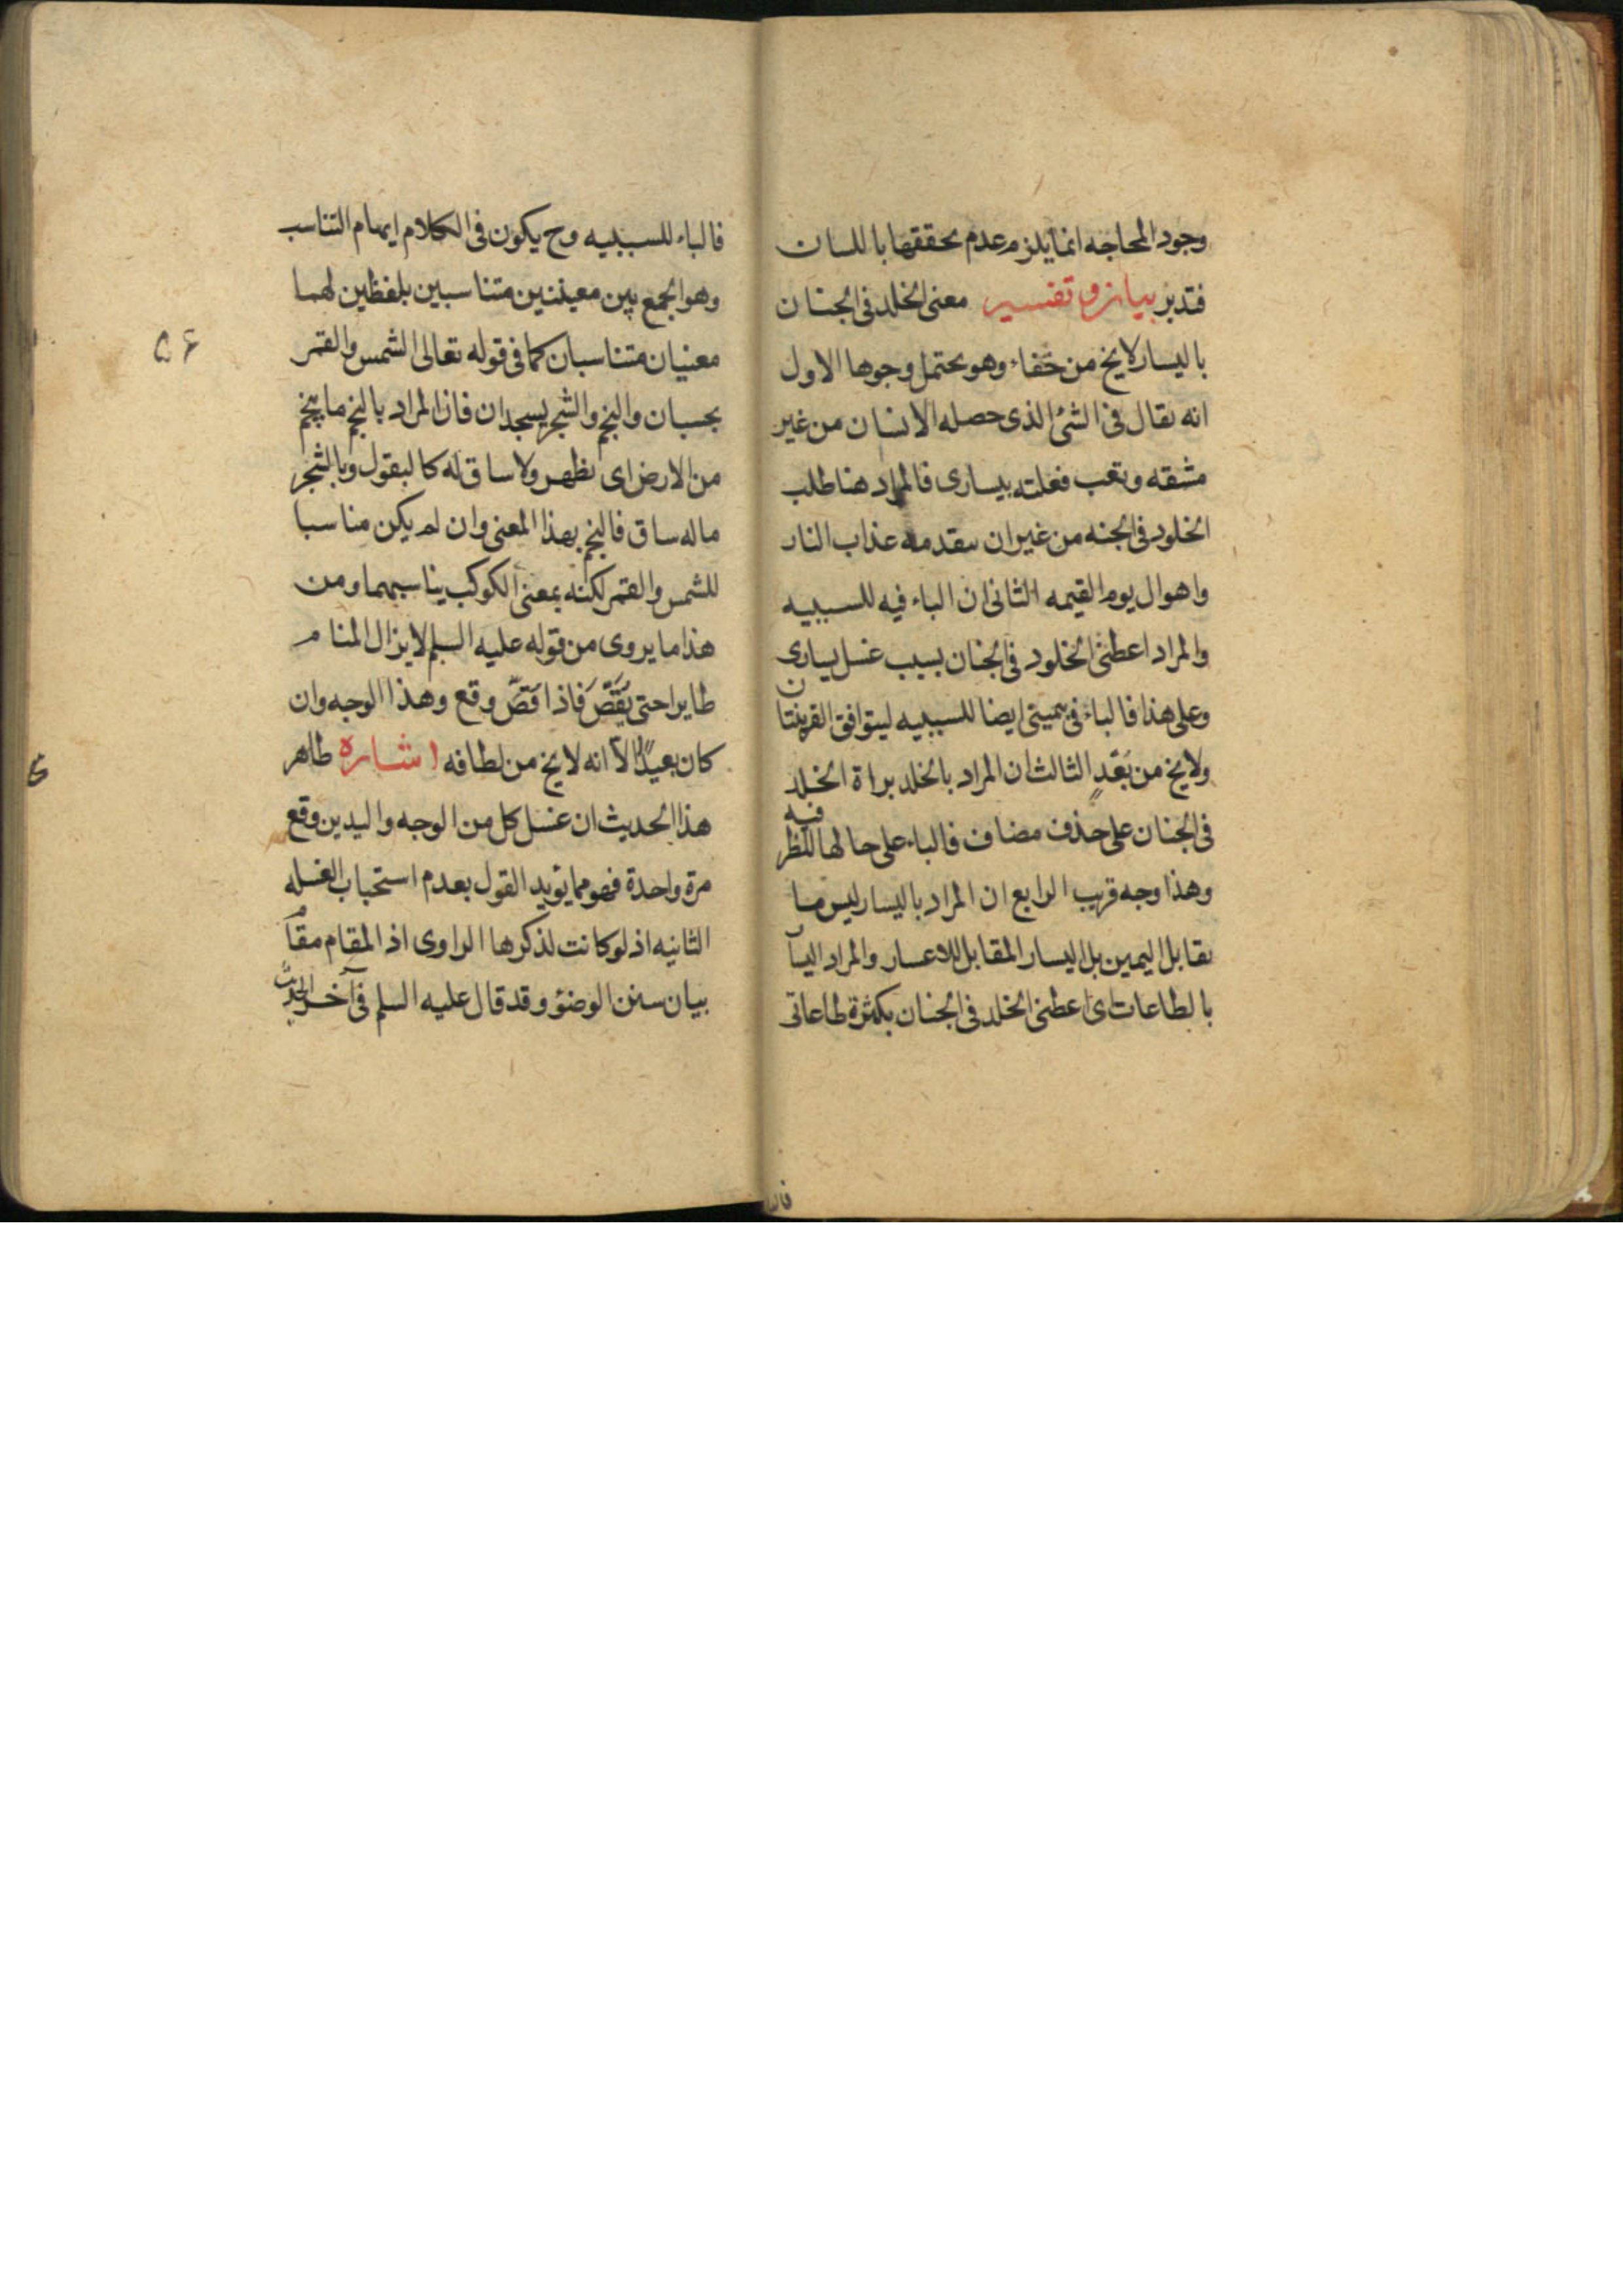 وجود المحاجه انما يلزم عدم تحققها باللسان
فتدبر بيان و تفسير معنى الخلد فى الجنان
باليسار لايخ من خفاء وهو يحتمل وجوها الاول
انه يقال فى الشئ الذى حصله الانسان من غير
مشقه وتعب فعلته بيسارى فالمراد هنا طلب
الخلود فى الجنه من غير ان يتقدمه عذاب النار
واهوال يوم القيمه الثانى ان الباء فيه للسببيه
والمراد اعطنى الخلود فى الجنان بسبب غسل يسارى
وعلى هذا فالباء فى بيمينى ايضا للسببيه ليتوافق القرينتان
ولايخ من بُعْدٍ الثالث ان المراد بالخلد براة الخلد
فى الجنان على حذف مضاف فالباء على حالها للظرفيه
وهذا وجه قريب الرابع ان المراد باليسار ليس ما
يقابل اليمين بل اليسار المقابل للاعسار والمراد اليسآ
بالطاعات اى اعطنى الخلد فى الجنان بكثرة طاعاتى
فالباء للسببيه وح يكون فى الكلام ايهام التناسب
وهو الجمع بين معينين متناسبين بلفظين لهما
معنيان متناسبان كما فى قوله تعالى الشمس والقمر
بحسبان والنجم والشجر يسجدان فان المراد بالنجم ما ينجم
من الارض اى يظهر ولا ساق له كالبقول وبالشجر
ماله ساق فالنجم بهذا المعنى وان لم يكن مناسبا
للشمس والقمر لكنه بمعنى الكوكب يناسبهما ومن
هذا ما يروى من قوله عليه السلم لايزال المنام
طايرا حتى يُقَصَّ فاذا قَصَّ وقع وهذا الوجه وان
كان بعيدًا الا انه لايخ من لطافه اشاره ظاهر
هذا الحديث ان غسل كل من الوجه واليدين وقع
مرة واحدة فهو مما يؤيد القول بعدم استحباب الغسله
الثانيه اذ لو كانت لذكرها الراوى اذ المقام مقام
بيان سنن الوضؤ وقد قال عليه السلم فى آخر الحديث
۵۶